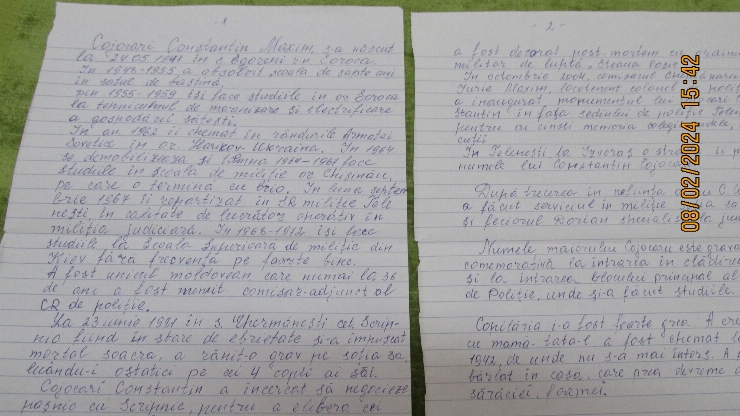 - 1 -
Cojocari Constantin Maxim, s-a născut
la 24.05.1941 în s. Egoreni r-n Soroca.
În 1948-1955 a absolvit școala de șapte ani
în satul de baștină.
Din 1955-1959 își face studiile în or. Soroca
la tehnicumul de mecanizare și electrificare
a gospodăriei sătești.
În an. 1962 îi chemat în rândurile Armatei
Sovetice în or. Harkov Ukraina. În 1964
se demobilizează și
studiile în Școala de miliție or. Chișinău,
pe care o termină cu brio. În luna septem
brie 1967 îi repartizat în SR miliție Tele
nești în calitate de lucrător operativ în
miliția judiciară. În 1968-1972 își face
studiile la Școala Superioară de miliție din
Kiev fără frecvență pe foarte bine.
A fost unicul moldovean care numai la 36
de ani a fost numit comisar-adjunct al
CR de poliție.
La 23 iunie 1991 în s. cet. Scrip-
nic fiind în stare de ebrietate și-a împușcat
mortal soacra, a rănit-o grav pe soția sa
luându-i ostatici pe cei 4 copii ai săi.
Cojocari Constantin a încercat să negocieze
pașnic cu Scripnic, pentru a elibera cei
- 2 -
a fost decorat post-mortem cu
militar de luptă
În octombrie 2004, comisarul
Iurie Maxim, locotenent colonel
a inaugurat monumentul lui
stantin în fața sediului de poliție Tele
pentru a cinsti memoria
În Telenești la Izvoraș o stradă îi
numele lui Constantin Cojoca
După trecerea în neființă
a făcut serviciul în miliție
și feciorul Dorian specialist la
Numele maiorului Cojocaru este grava
comemorativă la intrarea în clădirea
și la intrarea blocului principal al
de Poliție, unde și-a făcut studiile.
Copilăria i-a fost foarte grea. A cres
cu mama. Tata-l a fost chemat la
1942, de unde nu s-a mai întors. A f
bărbat în casă, care prea devreme a
sărăciei, foamei.
08/02/2024 15:42